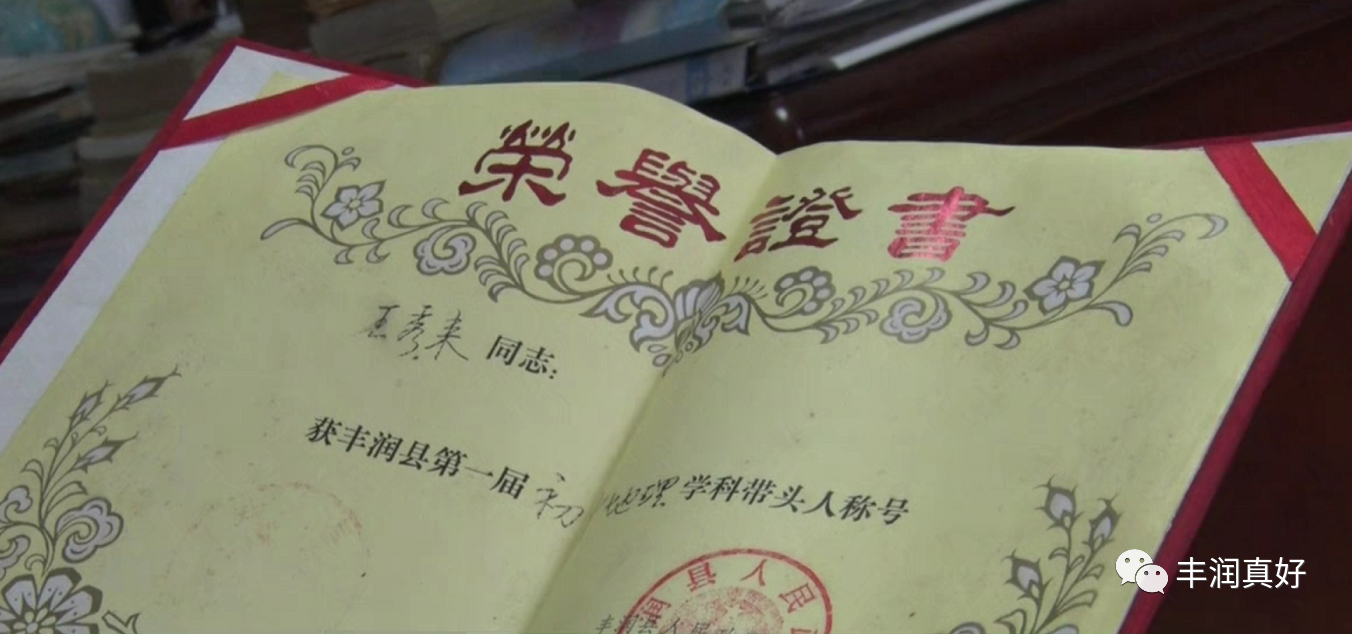 榮譽證書
王秀来 同志：
获丰润县第一届初中地理学科带头人称号
润县人民政
丰润县人民政
丰润真好